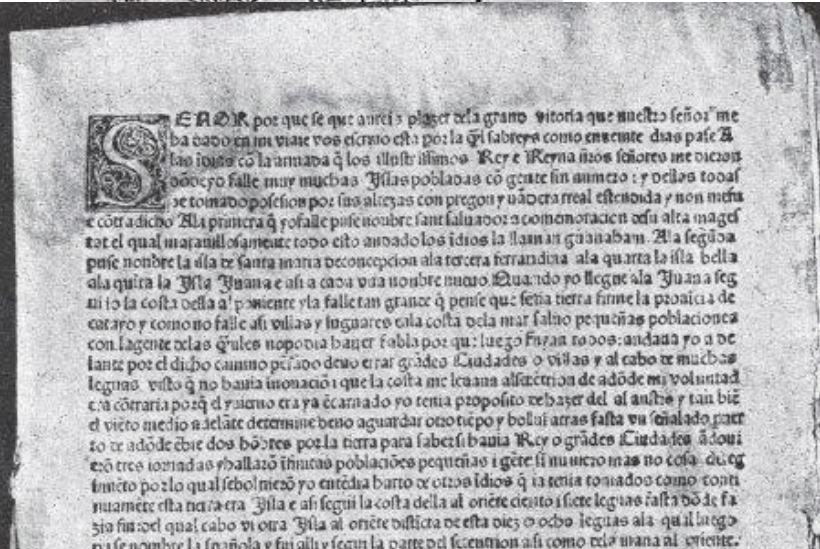 SEÑOR por que se que aureis plazer dela grand vitoria que nuestro señor me
ha dado en mi viaie vos escriuo esta por la q̃l sabreys como enueinte dias pase A
las idias cõ la armada q̃ los illustrissimos Rey e Reyna ñros señores me dieron
dõde yo falle muy muchas Yslas pobladas cõ gente sin numero : y dellas todas
he tomado posesion por sus altezas con pregon y uãdera rreal estendida y non mefu
e cõtradicho Ala primera q̃ yofalle puse nonbre sant saluador a comonoracion desu alta mages
tat el qual marauillosamente todo esto andado los idios la llaman guanaham. Ala segũda
puse nonbre la isla de santa maria deconcepcion ala tercera ferrandina ala quarta la isla bella
ala quita la Ysla Yuana e asi a cada vna nonbre nueuo. Quando yo llegue ala Yuana seg
ui io la costa della al poniente yla falle tan grande q̃ pense que seria tierra firme la prouicia de
catayo y como no falle asi villas y luguares enla costa dela mar saluo pequeñas poblaciones
con lagente delas q̃ules nopodia hauer fabla por que luego fuyan todos: andaua yo a de
lante por el dicho camino pẽsado deno errar grãdes Ciudades o villas y al cabo de muchas
leguas visto q̃ no hauia inouaciõ i que la costa me leuaua alsetetrion de adõde mi voluntad
era cõtraria porq̃ el yuierno era ya ẽcarnado yo tenia proposito dehazer del al austro y tan biẽ
el viẽto medio adelãte determine deno aguardar otro tiẽpo y bolui atras fasta vn señalado puer
to de adõde ẽbie dos hõbres por la tierra para saber si hauia Rey o grãdes Ciudades ãdoui
erõ tres iornadas yhallarõ ĩfinitas poblaciões pequeñas i gẽte sĩ numero mas no cosa deleg
imiẽto por lo qual sebolnierõ yo entẽdia harto de otros idios q̃ ia tenia tomados como conti
nuamẽte esta tierra era Ysla e asi segui la costa della al oriẽte ciento i siete leguas fasta dõde fa
zia fin: del qual cabo vi otra Ysla al oriẽte distĩcta de esta diez o ocho leguas ala qual luego
puse nombre la spañola y fui alli y segui la parte del setentrion asi como dela iuana al oriente.